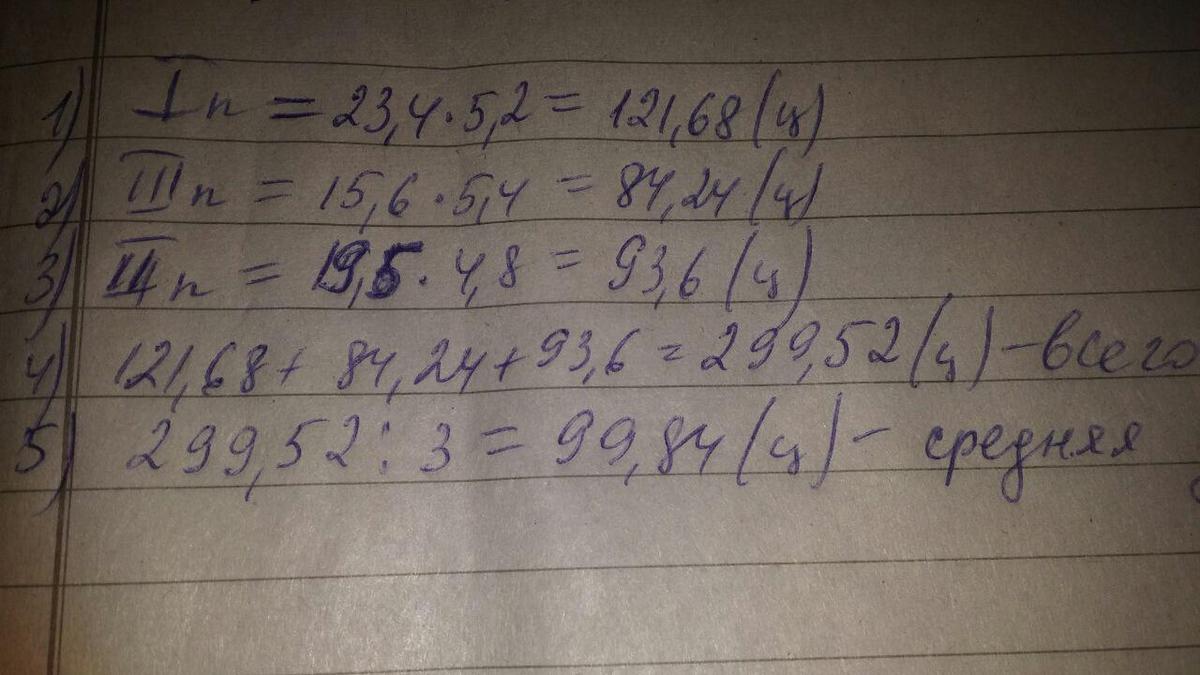 1) I п = 23,4 · 5,2 = 121,68 (ц)
2) III п = 15,6 · 5,4 = 84,24 (ц)
3) III п = 19,5 · 4,8 = 93,6 (ц)
4) 121,68 + 84,24 + 93,6 = 299,52 (ц) - всего
5) 299,52 : 3 = 99,84 (ц) - средняя